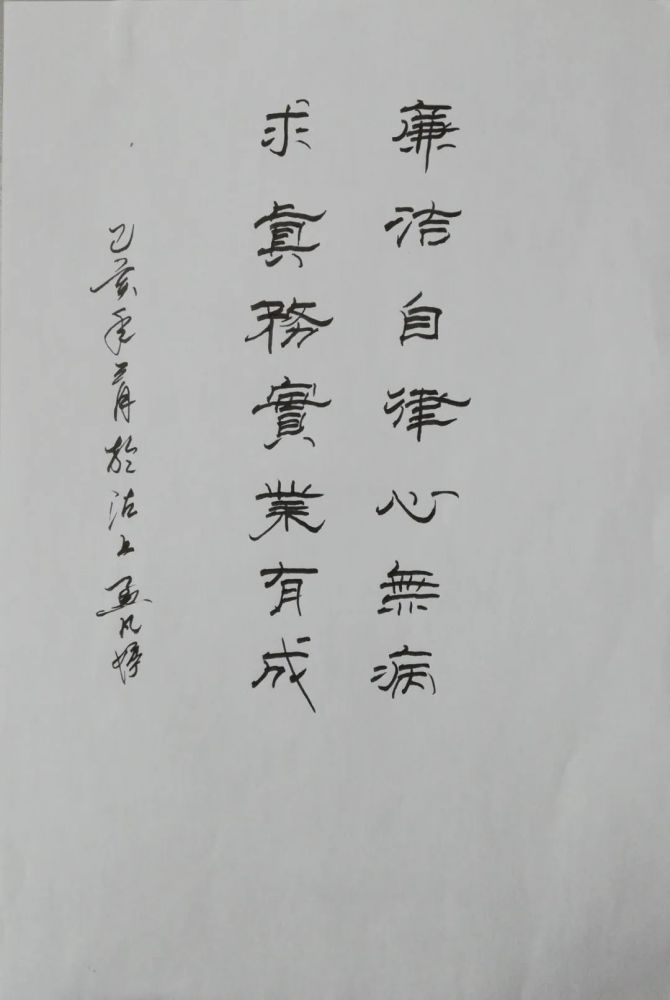 廉洁自律心無病
求真務實業有成
己亥年二月於沽上孟凡婷